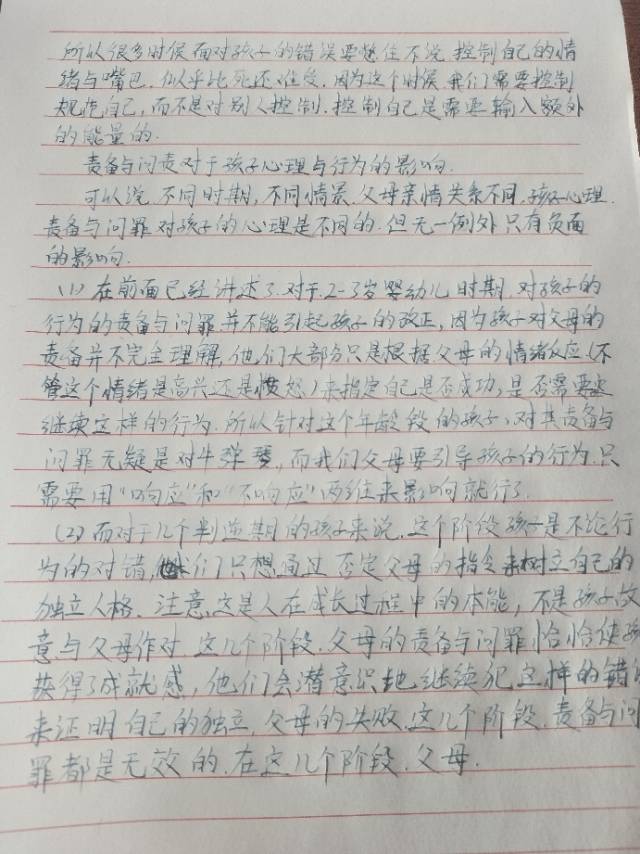 所以很多时候面对孩子的错误要憋住不说,控制自己的情
绪与嘴巴,似乎比死还难受,因为这个时候,我们需要控制
规范自己,而不是对别人控制,控制自己是需要输入额外
的能量的.
责备与问责对于孩子心理与行为的影响.
可以说,不同时期,不同情景,父母亲情关系不同,孩子心理.
责备与问罪对孩子的心理是不同的.但无一例外只有负面
的影响.
(1)在前面已经讲述了.对于2-3岁婴幼儿时期,对孩子的
行为的责备与问罪并不能引起孩子的改正,因为孩子对父母的
责备并不完全理解,他们大部分只是根据父母的情绪反应(不
管这个情绪是高兴还是愤怒)来指定自己是否成功,是否需要
继续这样的行为.所以针对这个年龄段的孩子,对其责备与
问罪无疑是对牛弹琴,而我们父母要引导孩子的行为,只
需要用“响应”和“不响应”两往来影响就行了.
(2)而对于几个判逆期的孩子来说,这个阶段孩子是不论行
为的对错,他们只想通过否定父母的指令来树立自己的
独立人格.注意,这是人在成长过程中的本能,不是孩子故
意与父母作对.这几个阶段,父母的责备与问罪恰恰使孩
获得了成就感,他们会潜意识地继续犯这样的错
来证明自己的独立,父母的失败.这几个阶段,责备与问
罪都是无效的.在这几个阶段,父母.